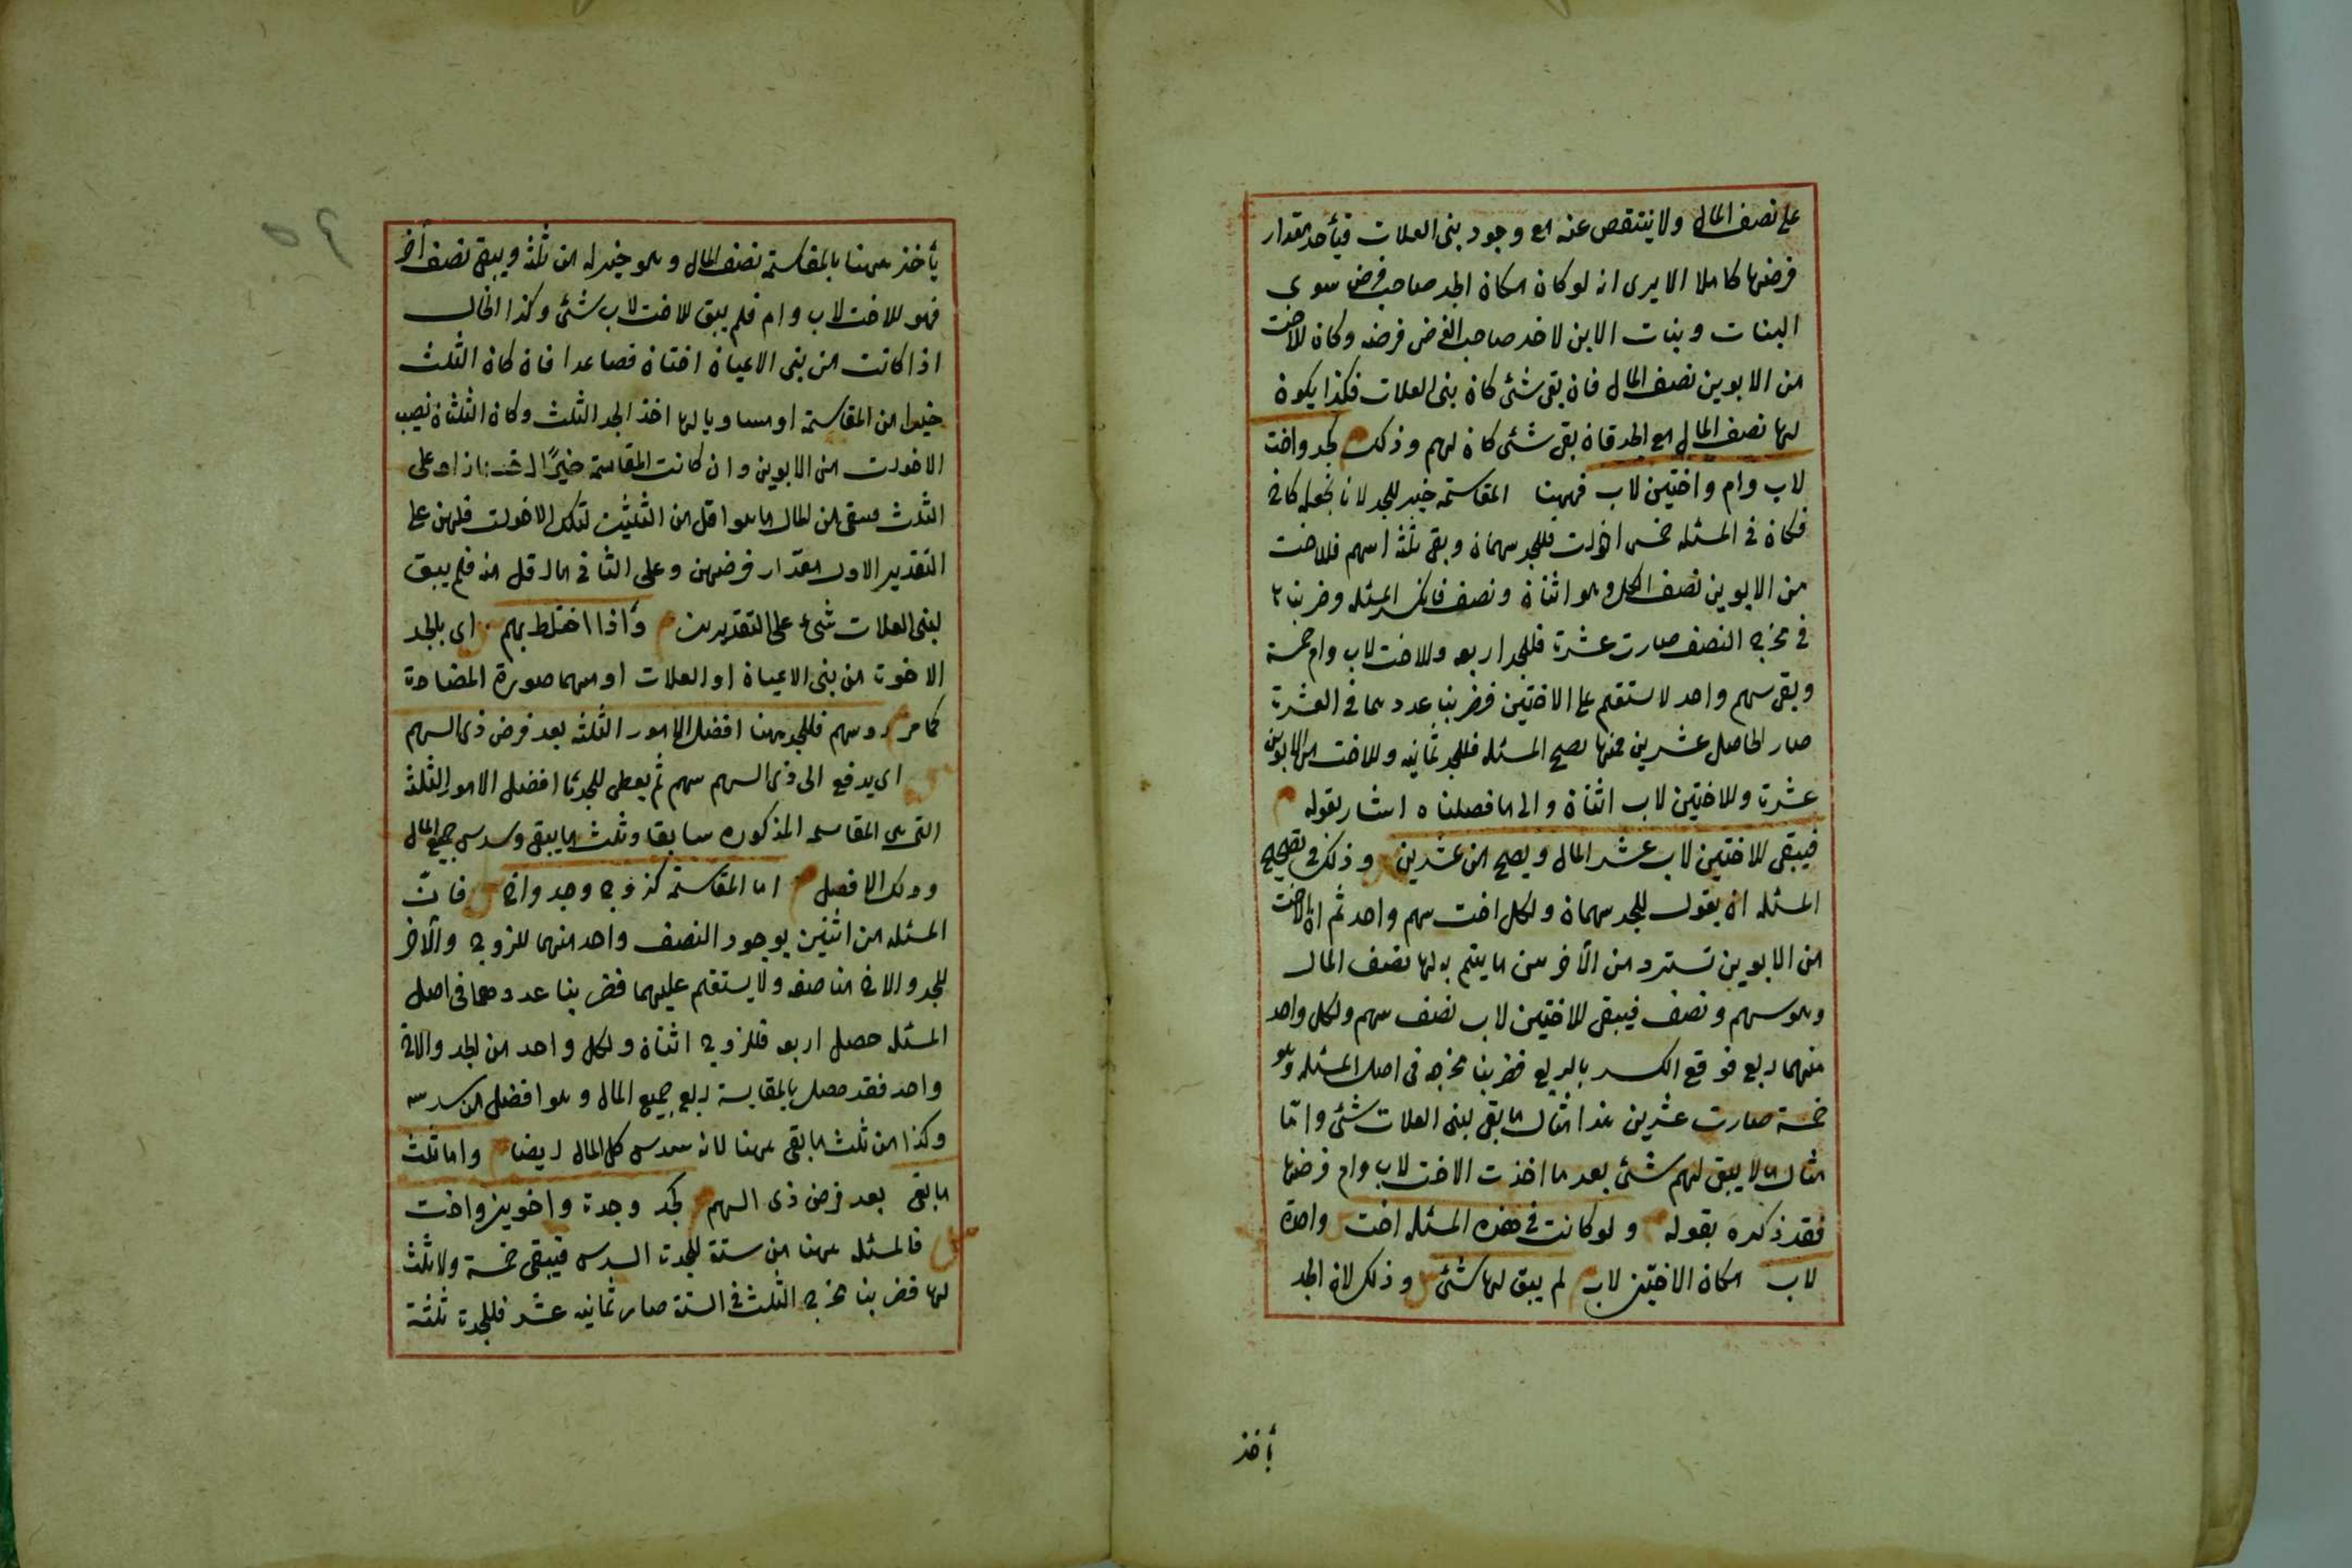 على نصف المال ولا ينتقص عنه مع وجود بنى العلات فيأخذ مقدار
فرضها كاملا الا يرى انه لو كان مكان الجد صاحب فرض سوى
البنات وبنات الابن لاخذ صاحب الفرض فرضه وكان للاخت
من الابوين نصف المال فان بقى شئ كان بنى العلات فكذا يكون
لها نصف المال مع الجد فان بقى شئ كان لهم وذلك م كجد واخت
لاب وام واختين لاب فههنا المقاسمة خير للجد لانا نجعله كاخ
فكان فى المسئله خمس اخوات فللجد سهمان وبقى ثلثة اسهم فللاخت
من الابوين نصف الكل وهو اثنان ونصف فانكسر المسئله وضربنا ٢
فى مخرج النصف صارت عشرة فللجد اربعه وللاخت لاب وام خمسة
وبقى سهم واحد لا يستقيم على الاختين فضربنا عددهما فى العشرة
صار الحاصل عشرين فمنها تصح المسئله فللجد ثمانيه وللاخت من الابوين
عشرة وللاختين لاب اثنان والى ما فصلناه اشار بقوله م
فيبقى للاختين لاب عشر المال ويصح من عشرين وذلك فى تصحيح
المسئله ان يقول للجد سهمان ولكل اخت سهم واحد ثم ان الاخت
من الابوين تسترد من الأخريين ما يتم به لها نصف المال
وهو سهم ونصف فيبقى للاختين لاب نصف سهم ولكل واحد
منهما ربع فوقع الكسر بالربع فضربنا مخرجه فى اصل المسئله وهو
خمسة صارت عشرين هذا مثال ما بقى لبنى العلات شئ وامّا
مثال ما لا يبقى لهم شئ بعد ما اخذت الاخت لاب وام فرضها
فقد ذكره بقوله ولو كانت فى هذه المسئله اخت واحدة
لاب مكان الاختين لاب م لم يبق لها شئ س وذلك لان الجد
يأخذ
يأخذ ههنا بالمقاسمة نصف المال وهو خير له من ثلثه ويبقى نصف أخر
فهو للاخت لاب وام فلم يبق للاخت لاب شئ وكذا الحال
اذا كانت من بنى الاعيان اختان فصاعدا فان كان الثلث
خيرا من المقاسمة او مساويا لها اخذ الجد الثلث وكان الثلثان نصيب
الاخوات من الابوين وان كانت المقاسمة خيرًا له زاد على
الثلث فيبقى من المال ما هو اقل من الثلثين لتلك الاخوات فلهن على
التقدير الاول مقدار فرضهن وعلى الثانى ما لاقل منه فلم يبق
لبنى العلات شئ على التقديرين م واذا اختلط بهم س اى بالجد
الاخوت من بنى الاعيان او العلات او منهما صورة المضادة
كما مر م ذو سهم فللجد ههنا افضل الامور الثلثه بعد فرض ذى السهم
س اى يدفع الى ذى السهم سهم ثم يعطى للجد افضل الامور الثلثه
التى هى المقاسمه المذكوره سابقا وثلث ما يبقى وسدس جميع المال
وذلك الافضل م اما المقاسمة كزوج وجد واخ س فانّ
المسئله من اثنين بوجود النصف واحد منهما للزوج والآخر
للجد والاخ مناصفه ولا يستقيم عليهما فضربنا عددهما فى اصل
المسئله حصل اربعه فللزوج اثنان ولكل واحد من الجد والاخ
واحد فقد حصل بالمقاسمة ربع جميع المال وهو افضل من سدسه
وكذا من ثلث ما بقى ههنا لانه سدس كل المال ايضا م واما ثلث
ما بقى بعد فرض ذى السهم كجد وجدة واخوين واخت
س فالمسئله ههنا من ستة للجدة السدس فيبقى خمسة ولا ثلث
لها فضربنا مخرج الثلث فى الستة صار ثمانيه عشر فللجدة ثلثة